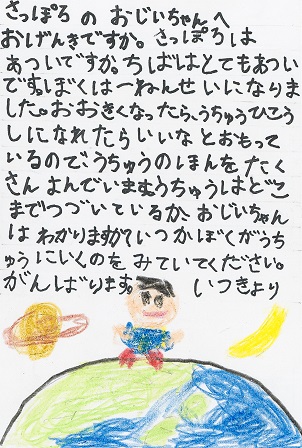 さっぽろ の おじいちゃんへ
おげんきですか。さっぽろは
あついですか。ちばはとてもあつい
です。ぼくは一ねんせいになりま
した。おおきくなったら、うちゅうひこう
しになれたらいいなとおもって
いるのでうちゅうのほんをたく
さんよんでいます。うちゅうはどこ
までつづいているか、おじいちゃん
はわかりますか？いつかぼくがうち
ゅうにいくのをみていてください。
がんばります。 いつきより